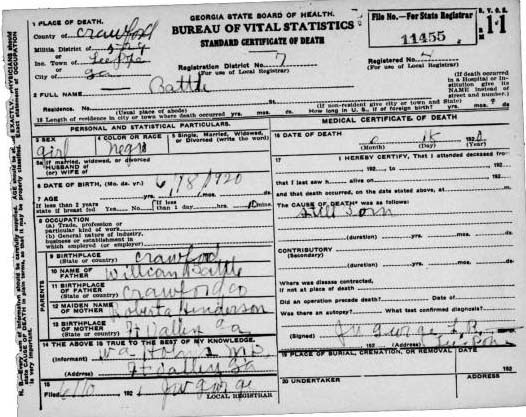 GEORGIA STATE BOARD OF HEALTH.
BUREAU OF VITAL STATISTICS
STANDARD CERTIFICATE OF DEATH
File No.—For State Registrar
11455
1 PLACE OF DEATH.
County of Crawford
Militia District of
Inc. Town of
City of Ga
Registration District No. 7
(For use of Local Registrar)
Registered No.
(For use of Local Registrar)
(If death occurred in a Hospital or Institution give its NAME instead of street and number.)
2 FULL NAME Battle
Residence. No. St.
(Usual place of abode) (If non-resident give city or town and State)
Length of residence in city or town where death occurred yrs. mos. ds. How long in U. S., if of foreign birth? yrs. mos. ds.
PERSONAL AND STATISTICAL PARTICULARS.
3 SEX
girl
4 COLOR OR RACE
negro
5 Single, Married, Widowed, or Divorced (write the word)
5a If married, widowed, or divorced
HUSBAND of
(or) WIFE of
6 DATE OF BIRTH (Mo. da. yr.) 1920
7 AGE yrs. mos. ds.
If less than 2 years state if breast fed Yes No If less than 1 day hrs. mins.
8 OCCUPATION
(a) Trade, profession or particular kind of work
(b) General nature of industry, business or establishment in which employed (or employer)
9 BIRTHPLACE
(State or country) Crawford
10 NAME OF FATHER William Battle
11 BIRTHPLACE OF FATHER
(State or country) Crawford Co
12 MAIDEN NAME OF MOTHER Roberta Henderson
13 BIRTHPLACE OF MOTHER
(State or country) Ft Valley Ga
PARENTS
14 THE ABOVE IS TRUE TO THE BEST OF MY KNOWLEDGE.
(Informant)
(Address) Ft Valley Ga
15
Filed 192 J W George
LOCAL REGISTRAR
MEDICAL CERTIFICATE OF DEATH.
16 DATE OF DEATH
(Month) (Day) (Year)
17 I HEREBY CERTIFY, That I attended deceased from
192 , to 192
that I last saw h alive on 192
and that death occurred, on the date stated above, at m.
The CAUSE OF DEATH* was as follows:
Still born
(duration) yrs. mos. ds.
CONTRIBUTORY
(Secondary)
(duration) yrs. mos. ds.
Where was disease contracted,
if not at place of death
Did an operation precede death? Date of
Was there an autopsy? What test confirmed diagnosis?
(Signed) J W George L. R.
192 (Address)
19 PLACE OF BURIAL, CREMATION, OR REMOVAL DATE
20 UNDERTAKER